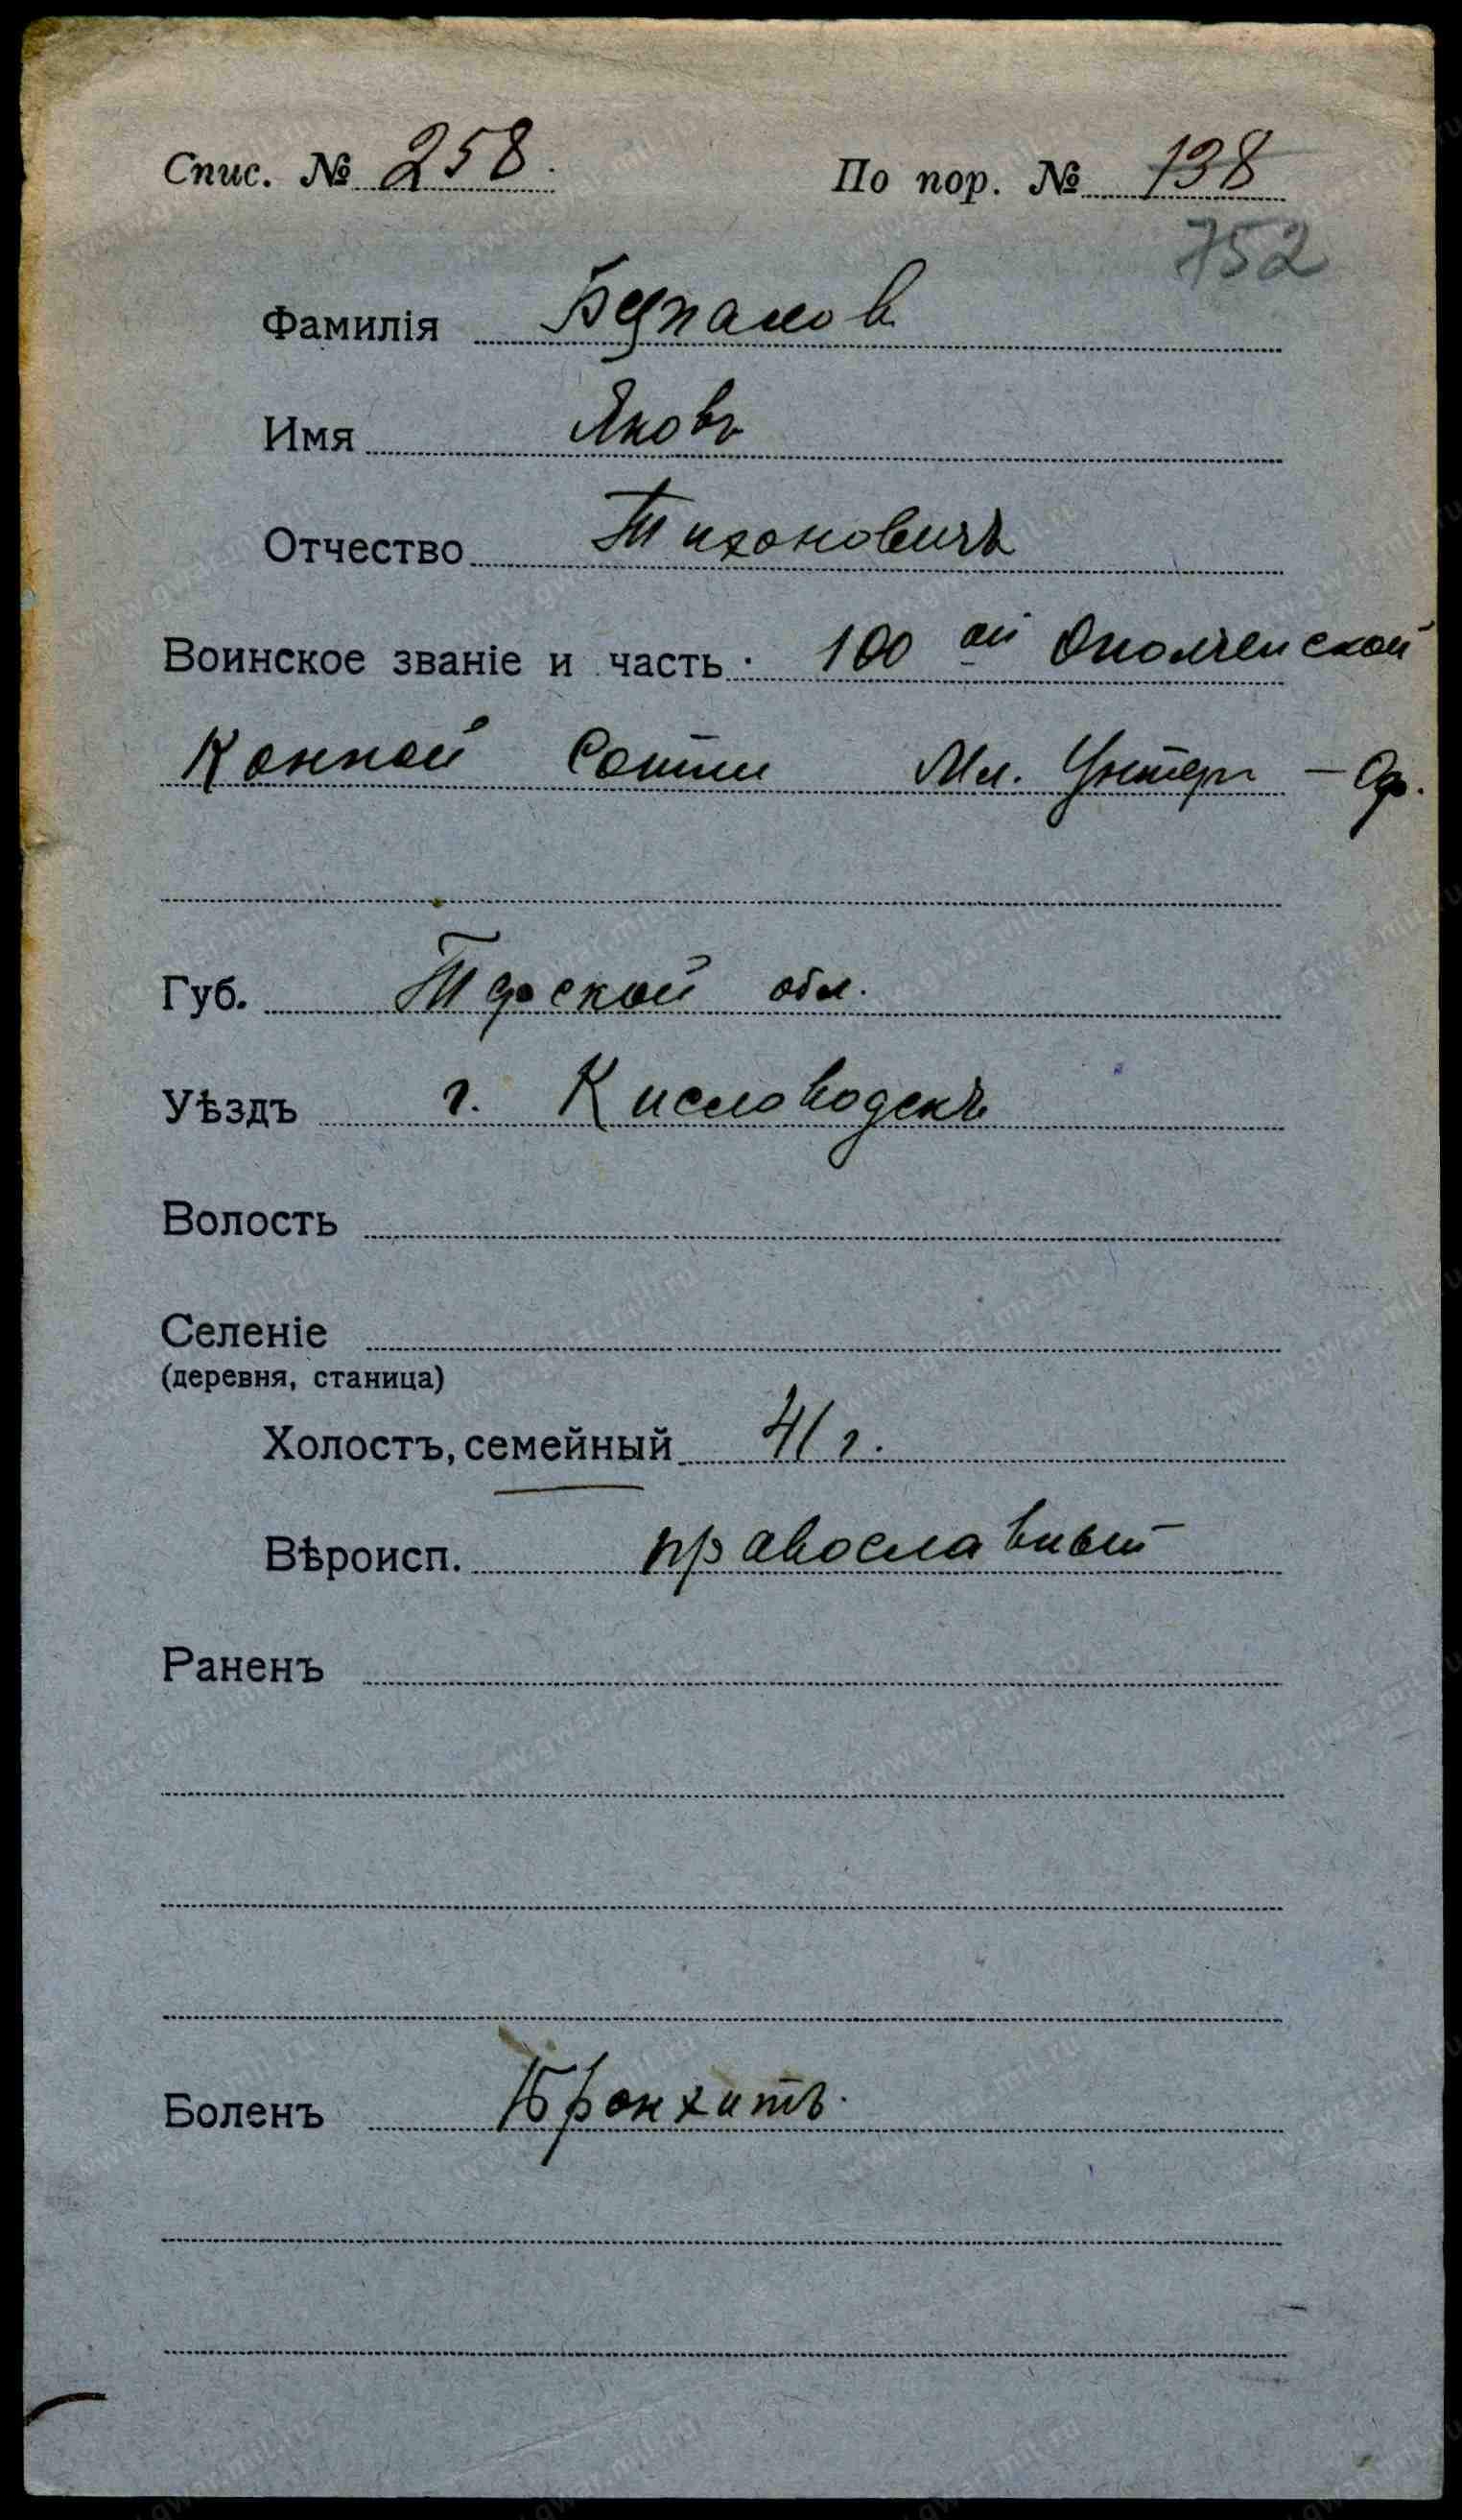 Спис. № 258. По пор. № 138
752
Фамилія
Имя Яковъ
Отчество Тихоновичъ
Воинское званіе и часть 100 ой Ополченской
Конной Сотни Мл. Унтеръ – Оф.
Губ. Терской обл.
Уѣздъ г. Кисловодскъ
Волость
Селеніе
(деревня, станица)
Холостъ, семейный 41 г.
Вѣроисп. православный
Раненъ
Боленъ Бронхитъ.